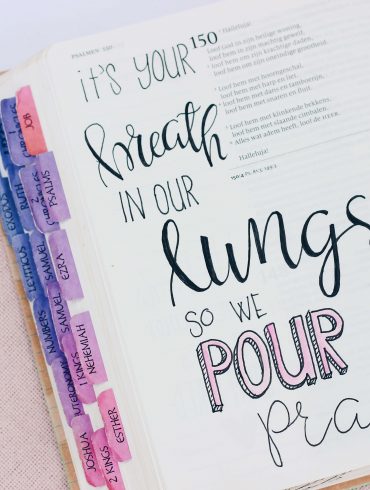 PSALMEN 150
150
Halleluja!
Loof God in zijn heilige woning,
loof hem in zijn machtig gewelf.
Loof hem om zijn krachtige daden,
loof hem om zijn oneindige grootheid.
Loof hem met hoorngeschal,
loof hem met harp en lier.
loof hem met dans en tamboerijn,
loof hem met snaren en fluit.
Loof hem met klinkende bekkens,
loof hem met slaande cimbalen.
Alles wat adem heeft, loof de HEER.
Halleluja!
it's YOUR
breath
IN OUR
lungs
SO WE
POUR
pra
JOB
PSALMS
EZRA
NEHEMIAH
ESTHER
RUTH
SAMUEL
SAMUEL
1 KINGS
2 KINGS
EXODUS
LEVITICUS
NUMBERS
DEUTERONOMY
JOSHUA